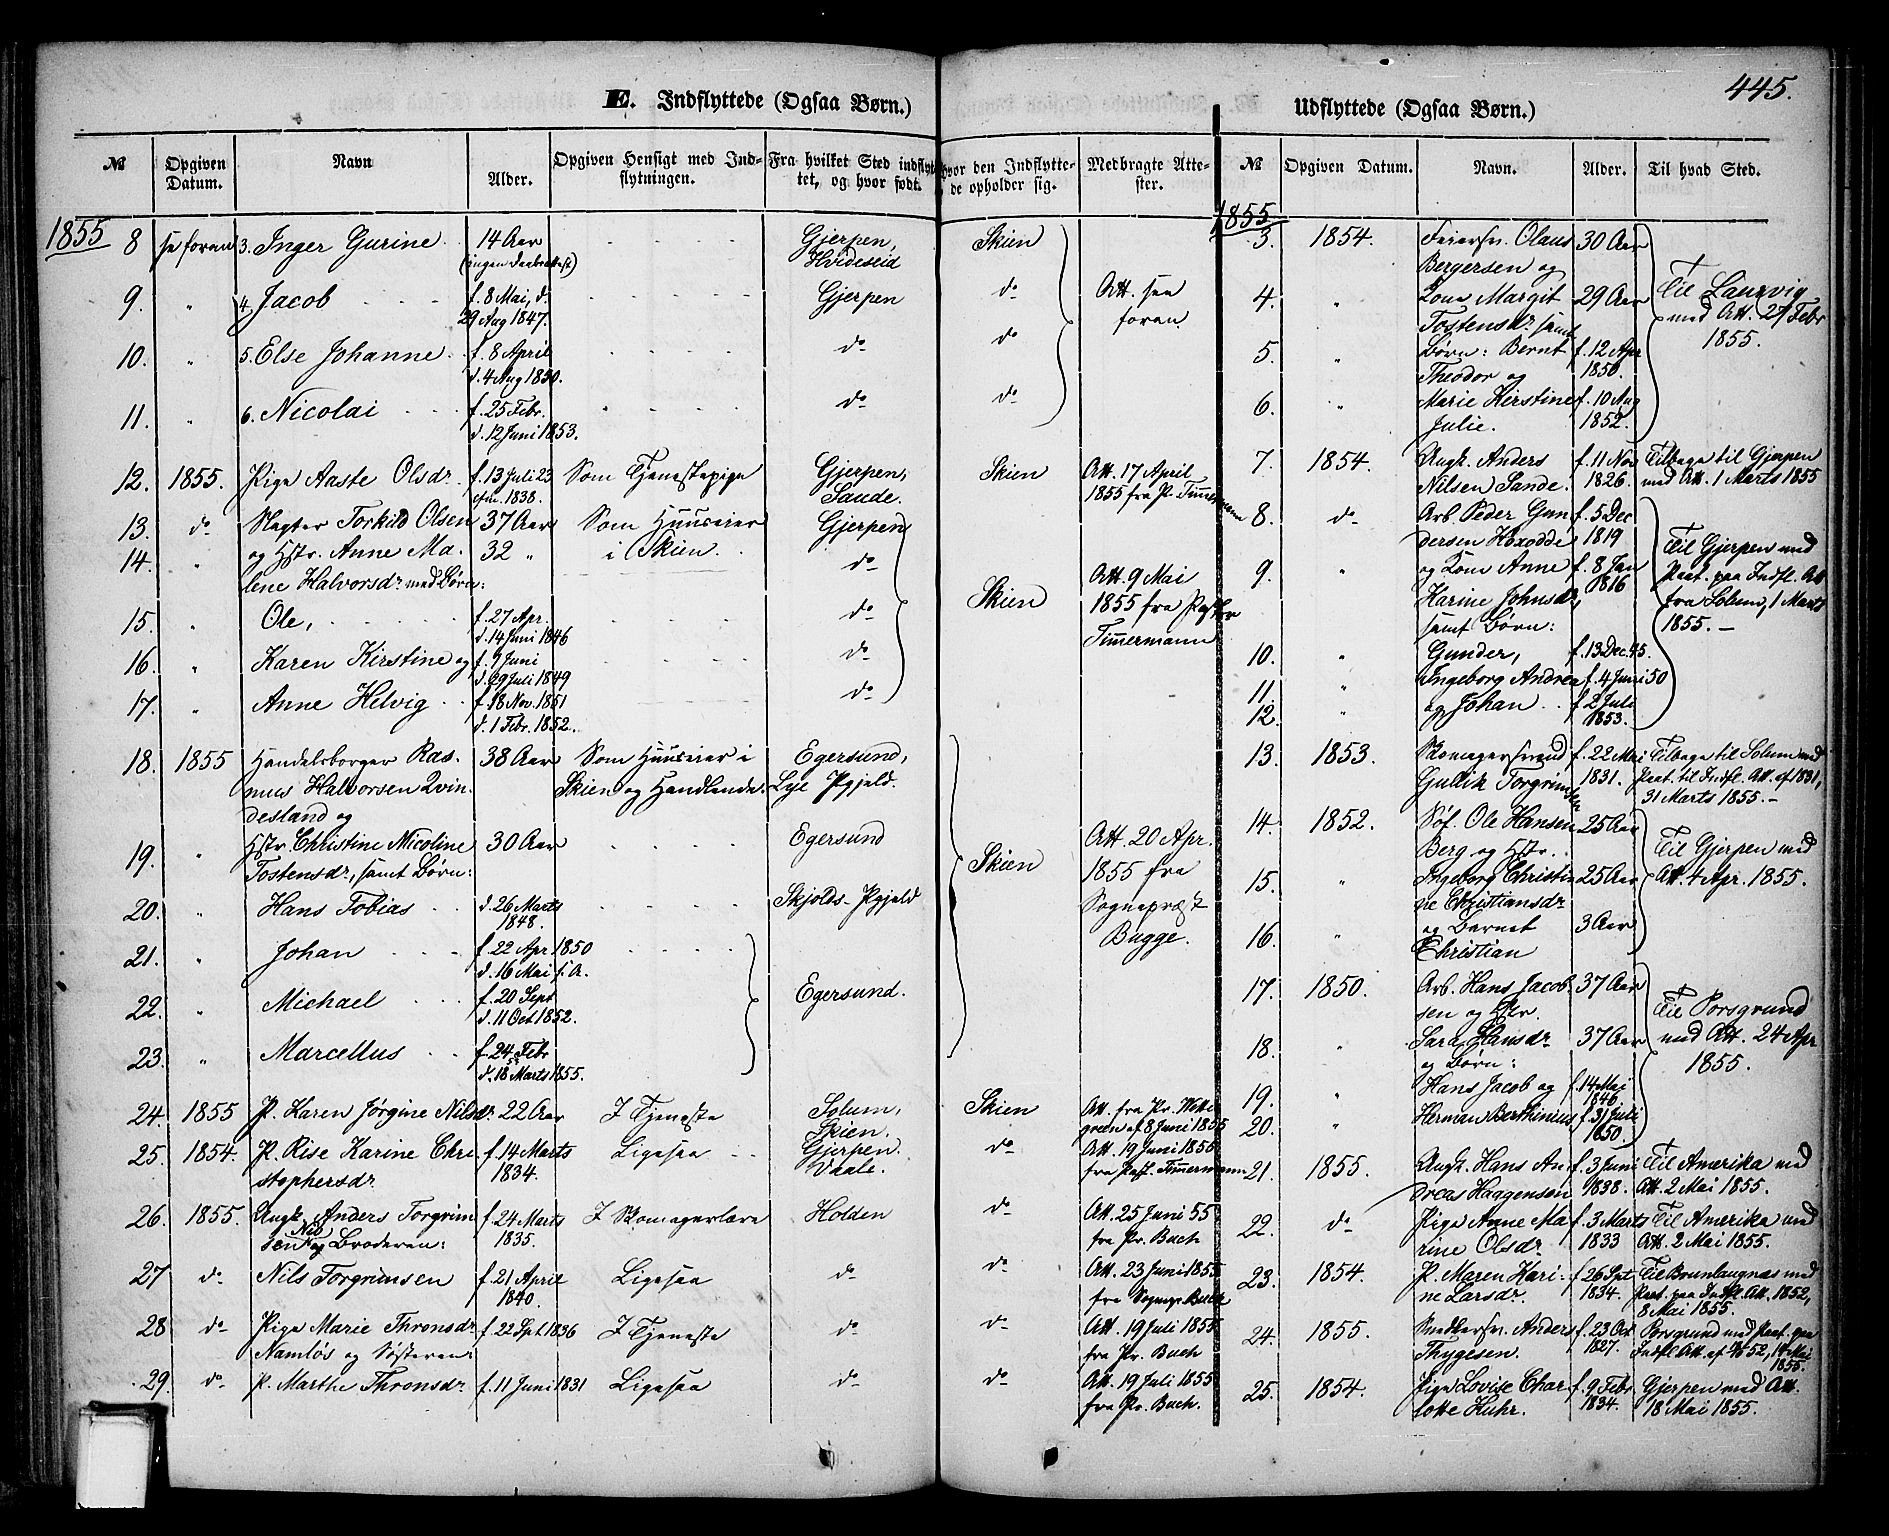 445.
E. Indflyttede (Ogsaa Børn.)
Udflyttede (Ogsaa Børn.)
№ Opgiven Datum. Navn Alder. Opgiven Hensigt med Indflytningen. Fra hvilket Sted indflyttet, og hvor født. Hvor den Indflyttede opholder sig. Medbragte Attester.
1855
8 se foran 3. Inger Gurine 14 Aar Gjerpen, Hvideseid Skien
9. " 4. Jacob f. 8 Mai, d. 29 Aug 1847. Gjerpen do Att. saa foran
10. " 5. Else Johanne f. 8 April d. 4 Aug 1850. do do
11. " 6. Nicolai f. 25 Febr. d. 12 Juni 1853. do do
12. 1855. Pige Aaste Olsdr f. 13 Juli 23 cfm. 1838. Som Tjenestepige Gjerpen, Saude. Skien Att. 17 April 1855 fra Pr. Timermann
13. do Slagter Torkild Olsen 37 Aar Som Huuseier i Skien. Gjerpen
14. " og Hstr. Anne Malene Halvorsdr med Børn: 32 " do Skien Att. 9 Mai 1855 fra Pastor Timermann
15. " Ole, f. 27 Apr. d. 14 Juni 1846 do
16. " Karen Kirstine og f. 9 Juni d. 29 Juli 1849 do
17. " Anne Helvig f. 18 Nov. 1851 d. 1 Febr. 1852. do
18. 1855 Handelsborger Rasmus Halvorsen Qvindesland og 38 Aar Som Huuseier i Skien og Handlende. Egersund, Lye Pgjeld.
19. " Hstr. Christine Nicoline Tostensdr, samt Børn: 30 Aar Egersund Skien Att. 20 Apr. 1855 fra Sognepræst Bugge.
20. " Hans Tobias d. 26 Marts 1848. Skjolds Pgjeld
21. " Johan f. 22 Apr 1850 d. 16 Mai s. A.
22. " Michael f. 20 Sept d. 11 Oct 1852. Egersund.
23. " Marcellus f. 24 Febr d. 18 Marts 1855.
24. 1855 P. Karen Jørgine Nilsdr. 22 Aar I Tjeneste Solum, Skien. Skien Att. fra Pr. af 8 Juni 1855
25. 1854. P. Rise Karine Christophersdr f. 14 Marts 1834. Ligesaa Gjerpen. Vaale. do Att. 19 Juni 1855 fra Past. Timermann
26. 1855. Ungk. Anders Torgrimsen og Broderen: f. 24 Marts 1835. I Skomagerlære Holden do Att. 25 Juni 55 fra Pr. Buch
27 do Nils Torgrimsen f. 21 April 1840. Ligesaa do do Att. 23 Juni 1855 fra Sognepr. Buch
28 do Pige Marie Thronsdr Namløs og Søsteren: f. 22 Spt 1836 I Tjeneste do do Att. 19 Juli 1855 fra Pr. Buch
29. do P. Marthe Thronsdr f. 11 Juni 1831 Ligesaa do do Att. 19 Juli 1855 fra Pr. Buch.
№ Opgiven Datum. Navn. Alder. Til hvad Sted.
1855
3. 1854. Feiersv. Olaus Bergersen og 30 Aar Til Laurvig med Att. 27 Febr 1855.
4. " Kone Margit Tostensdr samt 29 Aar
5. " Børn: Bernt Theodor og f. 12 Apr 1850.
6. " Marie Kirstine Julie. f. 10 Aug 1852.
7. 1854. Ungk. Anders Nilsen Sande. f. 11 Nov 1826. Tilbage til Gjerpen med Att. 1 Marts 1855
8. do Arb. Peder Gundersen f. 5 Dec 1819 Til Gjerpen med Paat. paa Indfl. Att fra Solum, 1 Marts 1855.
9. " og Kone Anne Karine Johnsdr, samt Børn: f. 8 Jan 1816
10. " Gunder, f. 13 Dec. 45.
11. " Ingeborg Andrea f. 4 Juni 50
12. " og Johan f. 2 Juli 1853.
13. 1853. Skomagersvend Gullik Torgrimsen f. 22 Mai 1831. Tilbage til Solum med Paat. til Indfl. Att. af 1831, 31 Marts 1855.
14. 1852. Søf. Ole Hansen Berg og Hstr. 25 Aar Til Gjerpen med Att. 4 Apr. 1855.
15. " Ingeborg Christine Christiansdr 25 Aar
16. " og Barnet Christian 3 Aar
17. 1850. Arb. Hans Jacobsen og Hstr. 37 Aar Til Porsgrund med Att. 24 Apr 1855.
18. " Sara Hansdr og Børn: 37 Aar
19. " Hans Jacob og f. 14 Mai 1846
20. " Herman Berthinius f. 31 Juli 1850.
21. 1855. Ungk. Hans Andreas Haagensen f. 3 Juni 1838. Til Amerika med Att. 2 Mai 1855.
22. do Pige Anne Marine Olsdr f. 3 Marts 1833 Til Amerika med Att. 2 Mai 1855.
23. 1854. P. Maren Karine Larsdr. f. 26 Spt 1834. Til Brunlangnæs med Paat. paa Indfl. Att. 1852, 8 Mai 1855.
24. 1855. Snedkersv. Anders Thygesen. f. 23 Oct 1827. Porsgrund med Paat. paa Indfl. Att. af 52, 14 Mai 1855.
25. 1854. Pige Lovise Charlotte Kuhr. f. 9 Febr 1834. Gjerpen med Att. 18 Mai 1855.